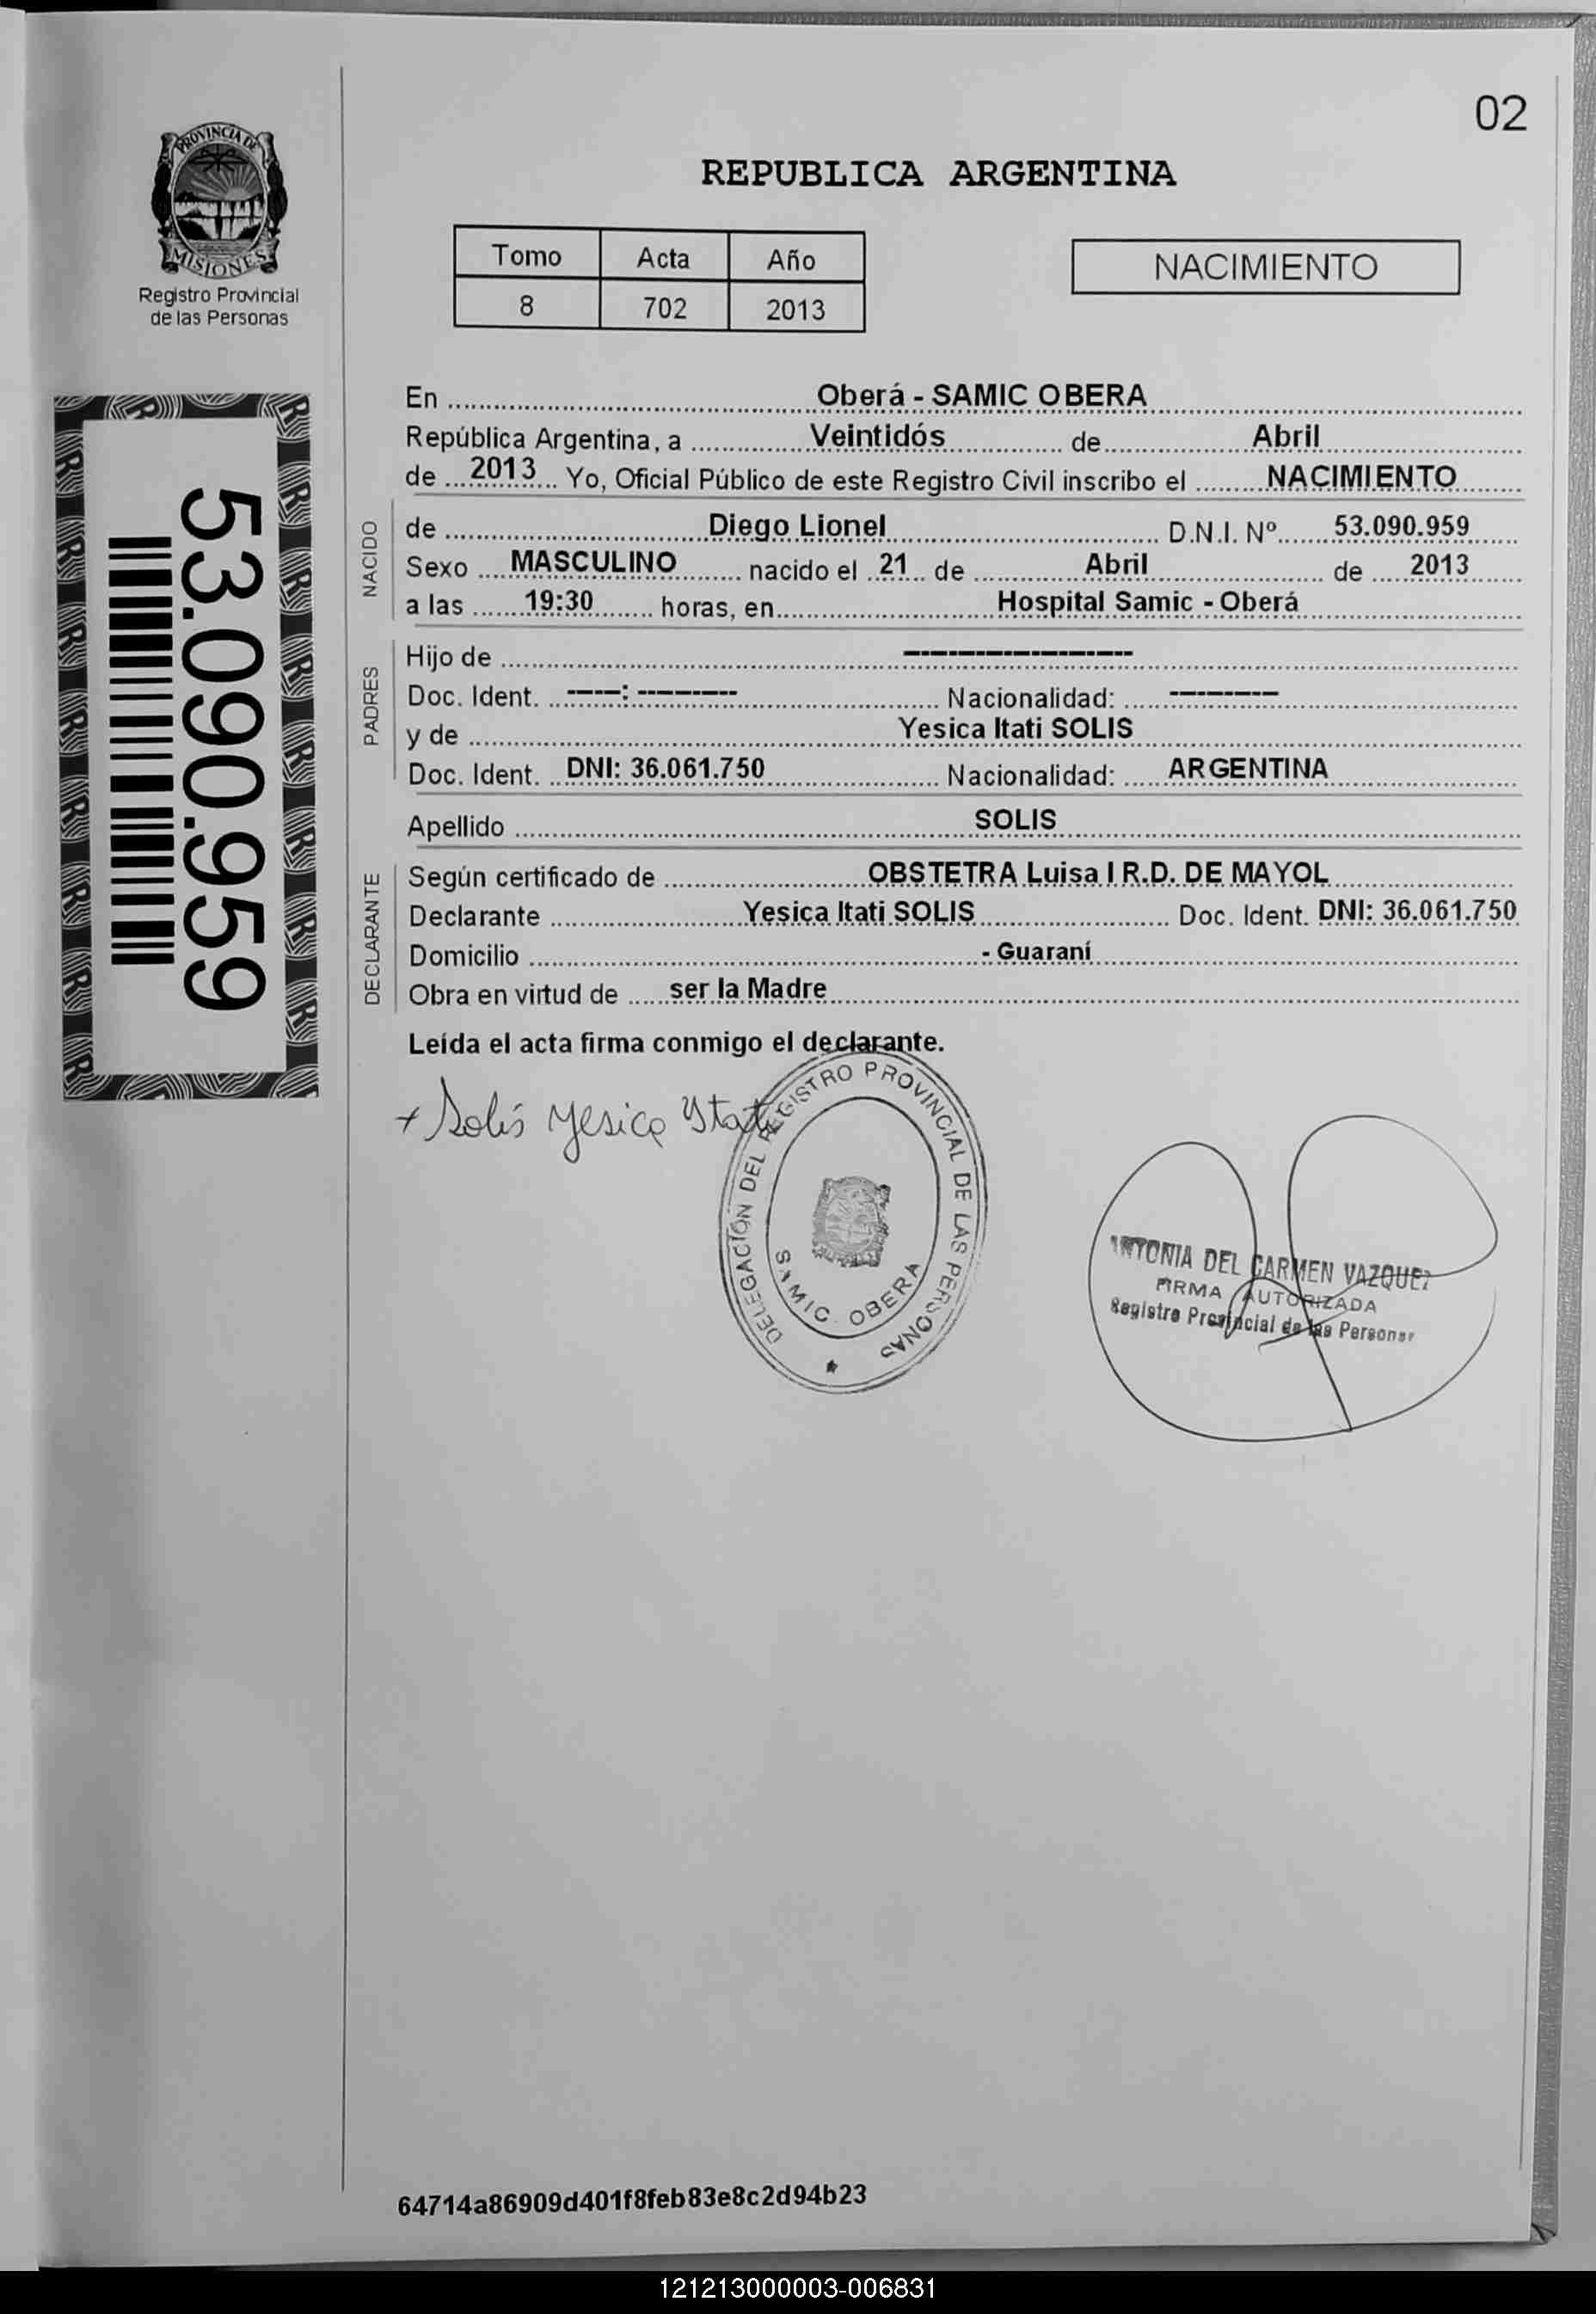 02
PROVINCIA DE
MISIONES
Registro Provincial
de las Personas
REPUBLICA ARGENTINA
Tomo Acta Año
8 702 2013
NACIMIENTO
53.090.959
En Oberá - SAMIC OBERA
República Argentina, a Veintidós de Abril
de 2013 Yo, Oficial Público de este Registro Civil inscribo el NACIMIENTO
NACIDO
de Diego Lionel D.N.I. Nº 53.090.959
Sexo MASCULINO nacido el 21 de Abril de 2013
a las 19:30 horas, en Hospital Samic - Oberá
PADRES
Hijo de ------------------
Doc. Ident. ----: -------- Nacionalidad: ---------
y de Yesica Itati SOLIS
Doc. Ident. DNI: 36.061.750 Nacionalidad: ARGENTINA
Apellido SOLIS
DECLARANTE
Según certificado de OBSTETRA Luisa I R.D. DE MAYOL
Declarante Yesica Itati SOLIS Doc. Ident. DNI: 36.061.750
Domicilio - Guaraní
Obra en virtud de ser la Madre
Leída el acta firma conmigo el declarante.
+ Solis Yesica Ytati
DELEGACIÓN DEL REGISTRO PROVINCIAL DE LAS PERSONAS
SAMIC OBERA
ANTONIA DEL CARMEN VAZQUEZ
FIRMA AUTORIZADA
Registro Provincial de las Personas
64714a86909d401f8feb83e8c2d94b23
121213000003-006831